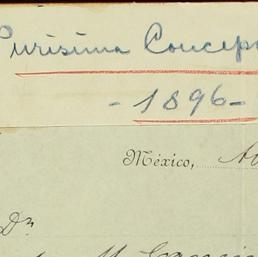 Purisima Concep
- 1896 -
México,
Dr